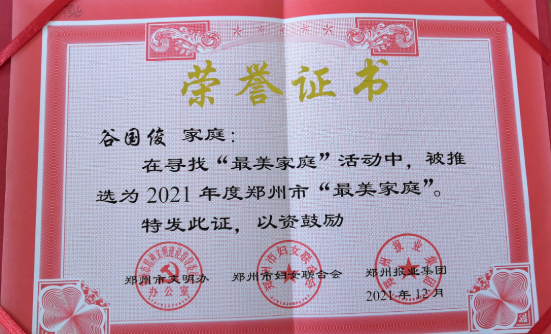 荣誉证书
谷国俊 家庭：
在寻找“最美家庭”活动中，被推
选为 2021 年度郑州市“最美家庭”。
特发此证，以资鼓励
郑州市文明办 郑州市妇女联合会 郑州报业集团
办公室
2021 年 12 月